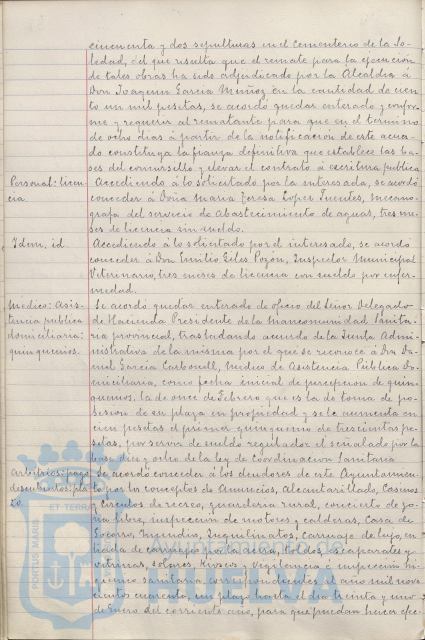 cincuenta y dos sepulturas en el Cementerio de la So-
ledad, del que resulta que el remate para la ejecución
de tales obras ha sido adjudicado por la Alcaldía á
Don Joaquin Garcia Muñoz en la cantidad de cien-
to un mil pesetas, se acordó quedar enterado y confor-
me y requerir al rematante para que en el termino
de ocho dias á partir de la notificación de este acuer-
do constituya la fianza definitiva que establece las ba-
ses del concursillo y elevar el contrato á escritura publica
Personal: licen-
cia.
Accediendo á lo solicitado por la interesada, se acordó
conceder á Doña Maria Teresa Lopez Fuentes, mecano-
grafa del servicio de Abastecimiento de aguas, tres me-
ses de licencia sin sueldo.
Idm. id.
Accediendo á lo solicitado por el interesado, se acordó
conceder á Don Emilio Giles Pozón, Inspector Municipal
Veterinario, tres meses de licencia con sueldo por enfer-
medad.
Medico: Asis-
tencia publica
domiciliaria:
quinquenios.
Se acordó quedar enterado de oficio del Señor Delegado
de Hacienda Presidente de la Mancomunidad Sanita-
ria provincial, trasladando acuerdo de la Junta Admi-
nistrativa de la misma por el que se reconoce á Don Da-
niel Garcia Carbonell, Medico de Asistencia Pública Do-
miciliaria, como fecha inicial de percepcion de quin-
quenios, la de once de Febrero que es la de toma de po-
sesion de su plaza en propiedad y se le aumenta en
cien pesetas el primer quinquenio de trescientas pe-
setas, por servir de sueldo regulador el señalado por la
base diez y ocho de la ley de Coordinación Sanitaria
Arbitrios: pago
descubiertos: pla-
zo.
Se acordó conceder á los deudores de este Ayuntamien-
to por los conceptos de Anuncios, Alcantarillado, Casinos
y Circulos de recreo, guarderia rural, concierto de zo-
na libre, inspección de motores y calderas, Casa de
Socorro, Inquilinatos, Carruaje de lujo, en-
trada de carruajes por la acera, toldos, escaparates y
vitrinas, solares, kioscos y vigilancia é inspección hi-
gienico sanitaria correspondientes al año mil nove
cientos cuarenta, un plazo hasta el dia treinta y uno
de Enero del corriente año, para que puedan hacer efec-
PORTUS MARIS ET TERRA